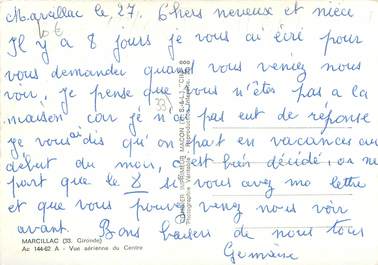 Marcillac le, 27. Chers neveux et nièce
Il y a 8 jours je vous ai écrit pour
vous demander quand vous veniez nous
voir, je pense que vous n'êtes pas a la
maison car je n'ai pas eut de réponse
je vous ai dis qu'on part en vacances au
début du mois, c'est bien décidé, on ne
part que le 8 si vous avez ma lettre
et que vous pouvez venez nous voir
avant. Bons baisers de nous tous
Germaine
MARCILLAC (33. Gironde)
Ac 144-62 A - Vue aérienne du Centre